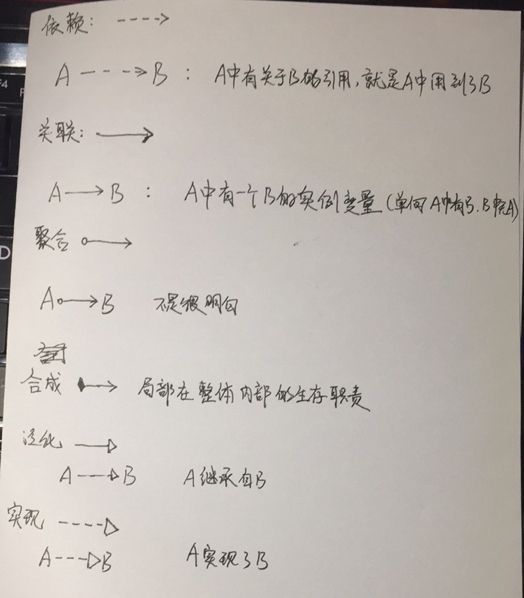 依赖: ---->
A ---> B : A中有关于B的引用,就是A中用到了B
关联: →
A → B : A中有一个B的实例变量(单向A中有B.B中无A)
聚合 o→
A o→ B 不是很明白
合成 → 局部在整体内部的生存职责
泛化 —▷
A —▷ B A继承自B
实现 ----▷
A ---▷ B A实现了B